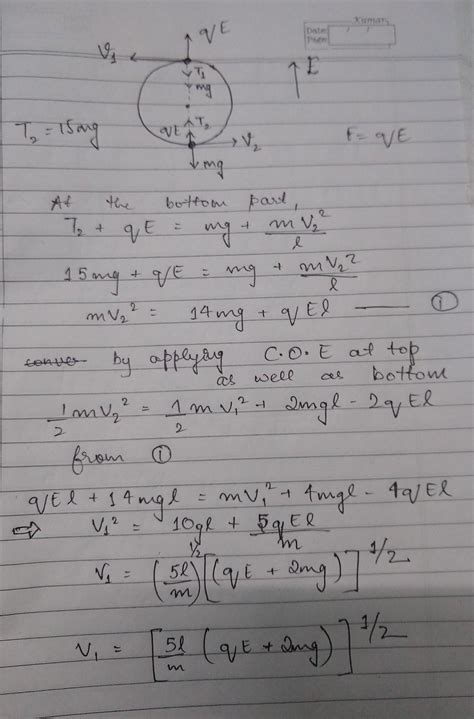 Kumari
Date / /
Page
qE
V₁
T₁
mg
E
T₂ = 15mg
qE T₂
V₂
mg
F = qE
At the bottom part,
T₂ + qE = mg + mV₂²/l
15mg + qE = mg + mV₂²/l
mV₂² = 14mg + qEl —— ①
by applying C.O.E at top
as well as bottom
1/2 mV₂² = 1/2 mV₁² + 2mgl - 2qEl
from ①
qEl + 14mgl = mV₁² + 4mgl - 4qEl
⇒ V₁² = 10gl + 5qEl/m
V₁ = (5l/m)^1/2 [(qE + 2mg)]^1/2
V₁ = [5l/m (qE + 2mg)]^1/2